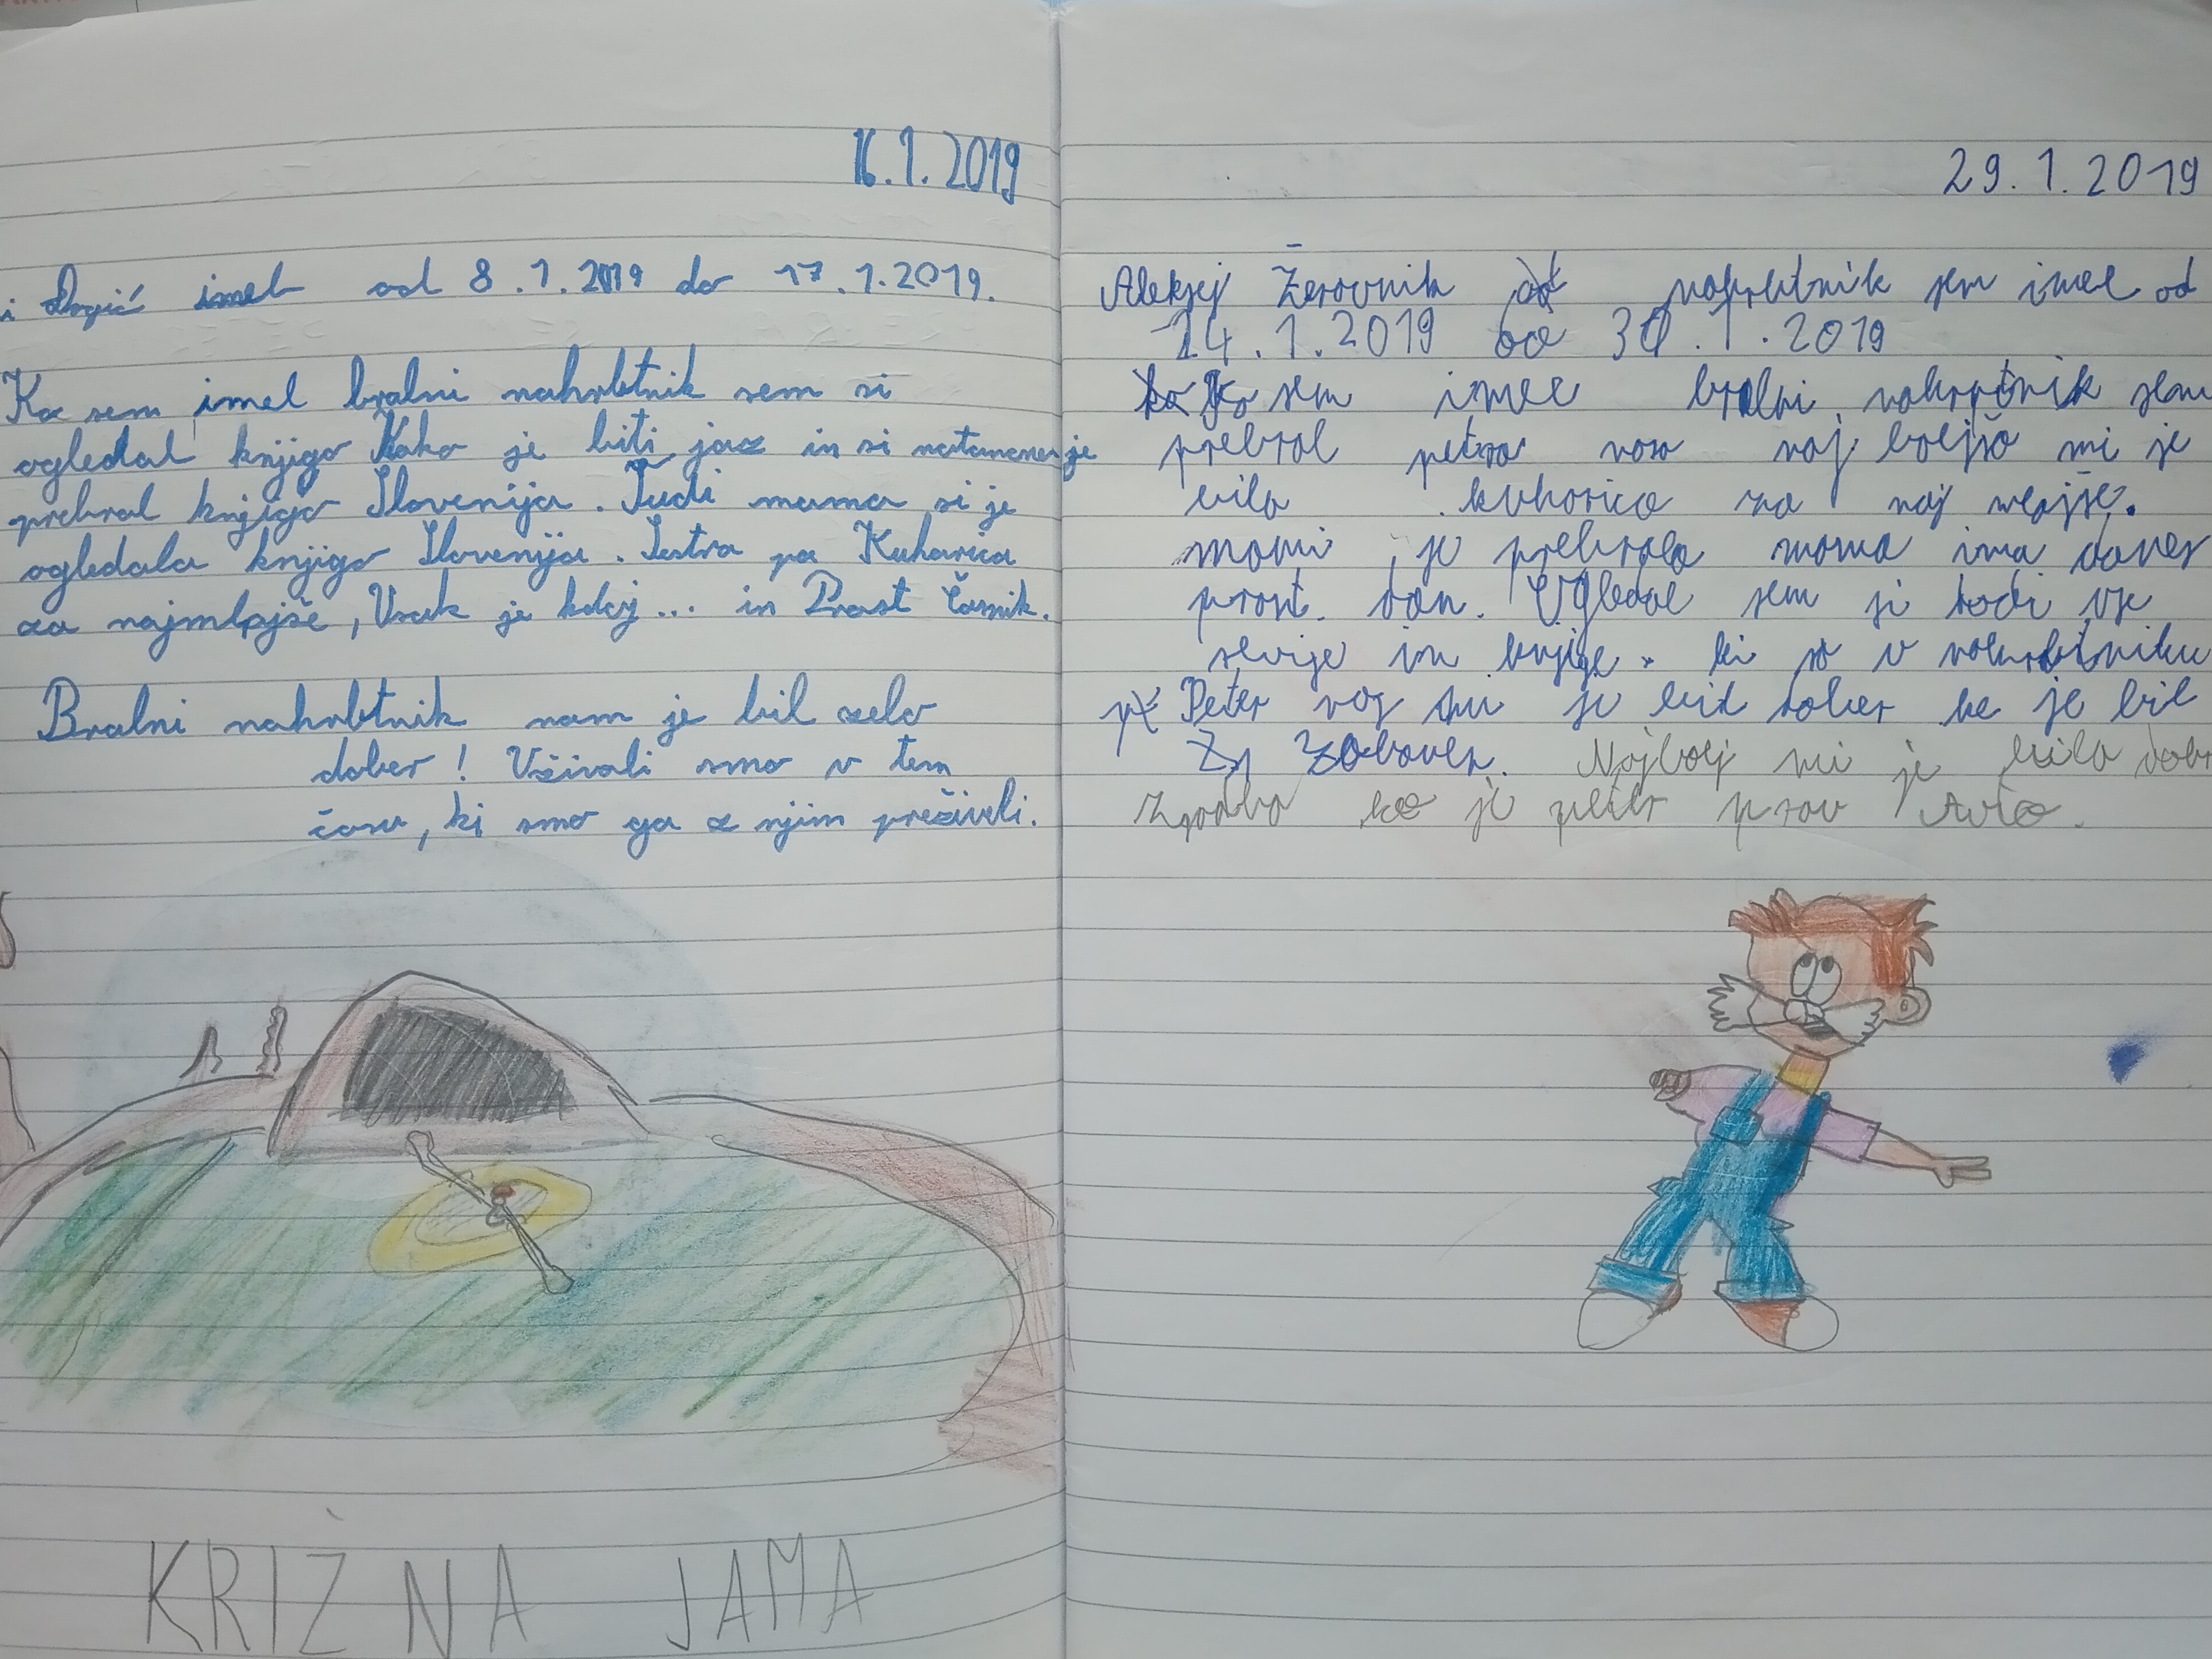 16.1.2019
i Dogić imel od 8.1.2019 do 17.1.2019.
Ko sem imel bralni nahrbtnik sem si
ogledal knjigo Kako je biti jaz in si natančneje
prebral knjigo Slovenija. Tudi mama si je
ogledala knjigo Slovenija. Sestra pa Kuharica
za najmlajše, Vsak je kdaj... in Prast Časnik.
Bralni nahrbtnik nam je bil zelo
dober! Uživali smo v tem
času, ki smo ga z njim preživeli.
KRIŽNA JAMA
29.1.2019
Aleksej Žerovnik nahrbtnik sem imel od
24.1.2019 do 30.1.2019
Ko sem imel bralni nahrptnik sem
prebral petra nosa naj boljša mi je
bila kuharica za naj mlajše.
mami je prebrala mama ima danes
prost dan. Ogledal sem si tudi vse
revije in knjige. ki so v nahrbtniku
Peter nos mi je bil dober ke je bil
Zabaven. Najbolj mi je bila dobr
Zgodba ko je peter prav